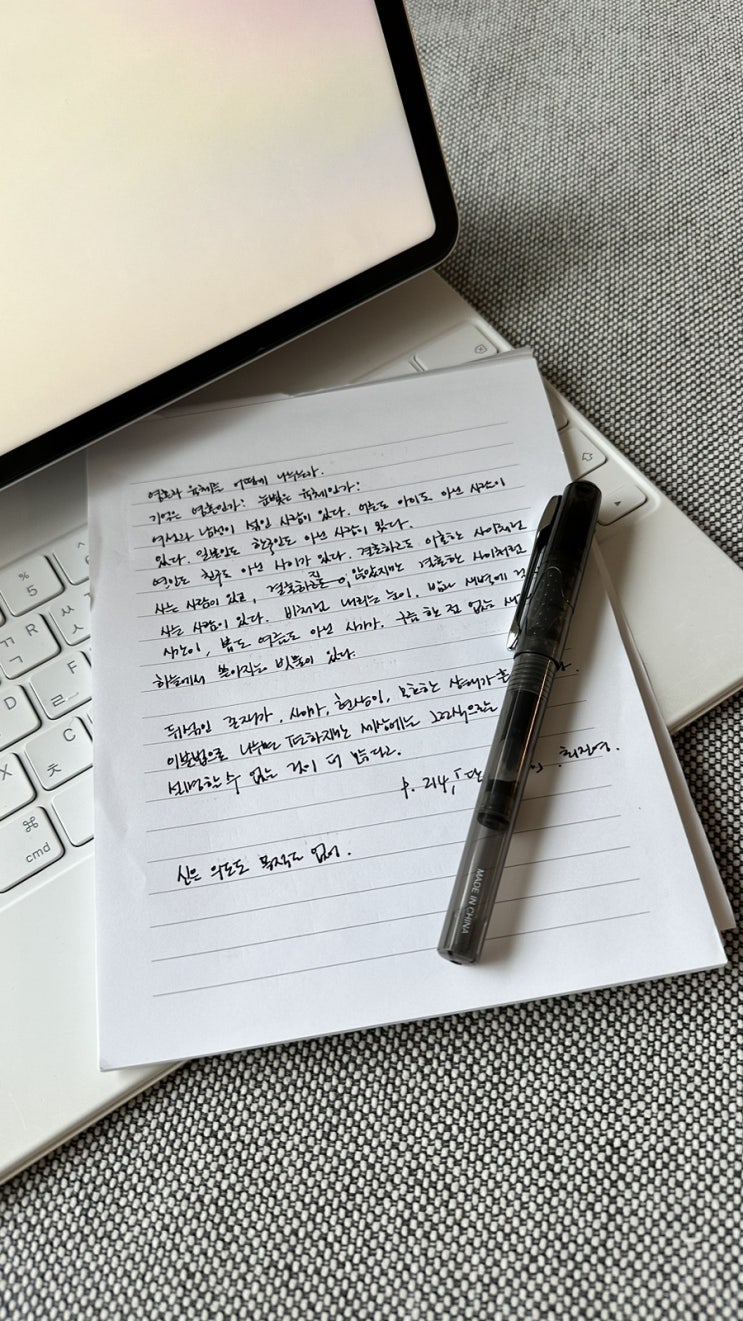 영혼과 육체는 어떻게 나누는가.
기억은 영혼인가? 눈빛은 육체인가?
여성과 남성이 섞인 사람이 있다. 어른도 아이도 아닌 사람이
있다. 일본인도 한국인도 아닌 사람이 있다.
연인도 친구도 아닌 사이가 있다. 결혼하고도 이혼한 사이처럼
사는 사람이 있고, 결혼하진 않았지만 결혼한 사이처럼
사는 사람이 있다. 비처럼 내리는 눈이, 밤과 새벽의
시간이, 봄도 여름도 아닌 시기가, 구름 한 점 없는
하늘에서 쏟아지는 빗물이 있다.
뒤섞인 존재가, 사이가, 현상이, 모호한 상태가
이분법으로 나누면 편하지만 세상에는 그런 식으로
설명할 수 없는 것이 더 많다고.
p. 214, 「단 최진영.
신은 의도도 목적도 없어.
MADE IN CHINA
% 5
^ 6
ㄲ ㄱ R
ㅆ ㅅ
D
F ㄹ
X
C ㅊ
⌘ cmd